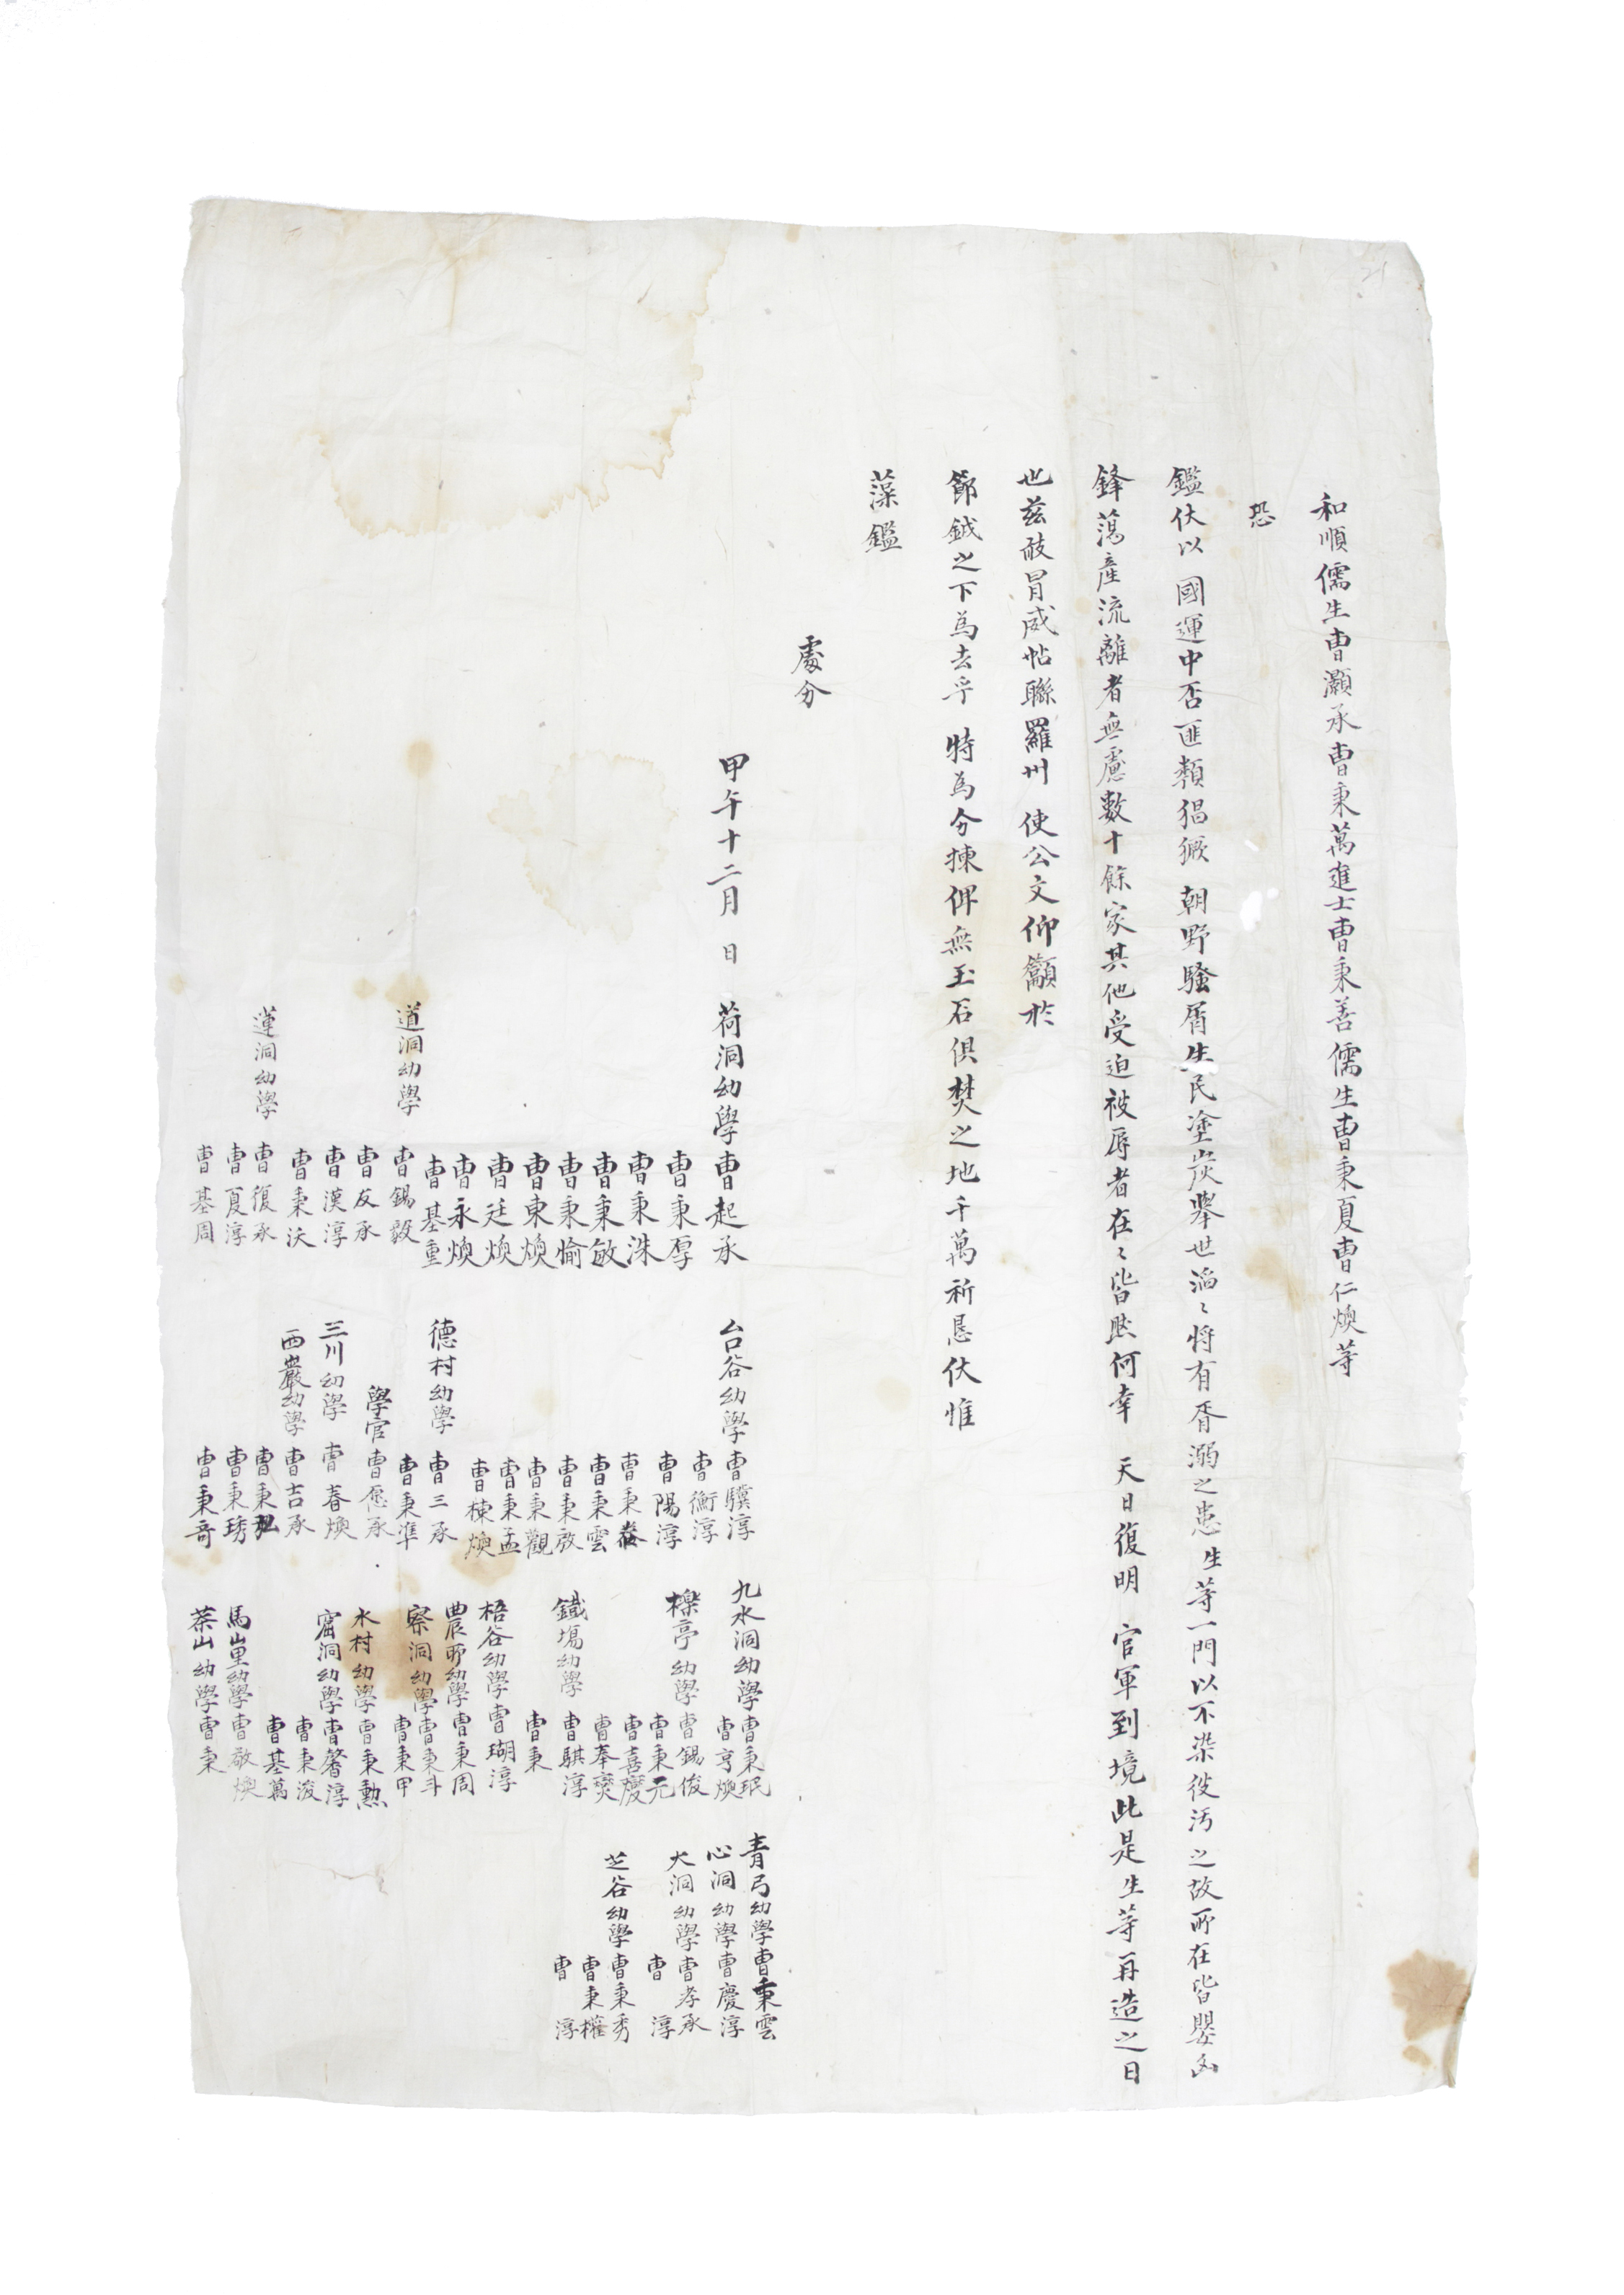 和順儒生曺灝承曺秉萬進士曺秉善儒生曺秉夏曺仁煥等
恐
鑑伏以 國運中否匪類猖獗 朝野騷屑生民塗炭擧世滔〻將有胥溺之患生等一門以不染彼汚之故所在皆嬰凶
鋒蕩產流離者無慮數十餘家其他受迫被辱者在〻皆然何幸 天日復明 官軍到境此是生等再造之日
也玆敢冒威帖聯羅州 使公文仰籲於
節鉞之下爲去乎 特爲分揀俾無玉石俱焚之地千萬祈恳伏惟
藻鑑
處分
甲午十二月 日
荷洞幼學曺起承
曺秉厚
曺秉洙
曺秉敏
曺秉愉
曺東煥
曺廷煥
曺永煥
曺基重
道洞幼學 曺錫毅
曺友承
曺漢淳
曺秉沃
蓮洞幼學 曺復承
曺夏淳
曺基周
台谷幼學曺驥淳
曺衡淳
曺陽淳
曺秉
曺秉雲
曺秉啟
曺秉觀
曺秉孟
曺棟煥
德村幼學 曺三承
曺秉準
學官 曺愿承
三川幼學 曺春煥
西巖幼學 曺吉承
曺秉弘
曺秉琇
曺秉奇
九水洞幼學曺秉珉
曺亨煥
櫟亭幼學曺錫俊
曺秉元
曺喜慶
曺奉奕
鐵塲幼學 曺騏淳
曺秉
梧谷幼學曺瑚淳
農所幼學曺秉周
察洞幼學曺秉斗
曺秉甲
水村幼學曺秉勳
窟洞幼學曺馨淳
曺秉浚
曺基萬
馬山里幼學曺敬煥
茶山幼學曺秉
青弓幼學曺秉雲
心洞幼學曺慶淳
大洞幼學曺孝承
曺 淳
芝谷幼學曺秉秀
曺秉權
曺 淳